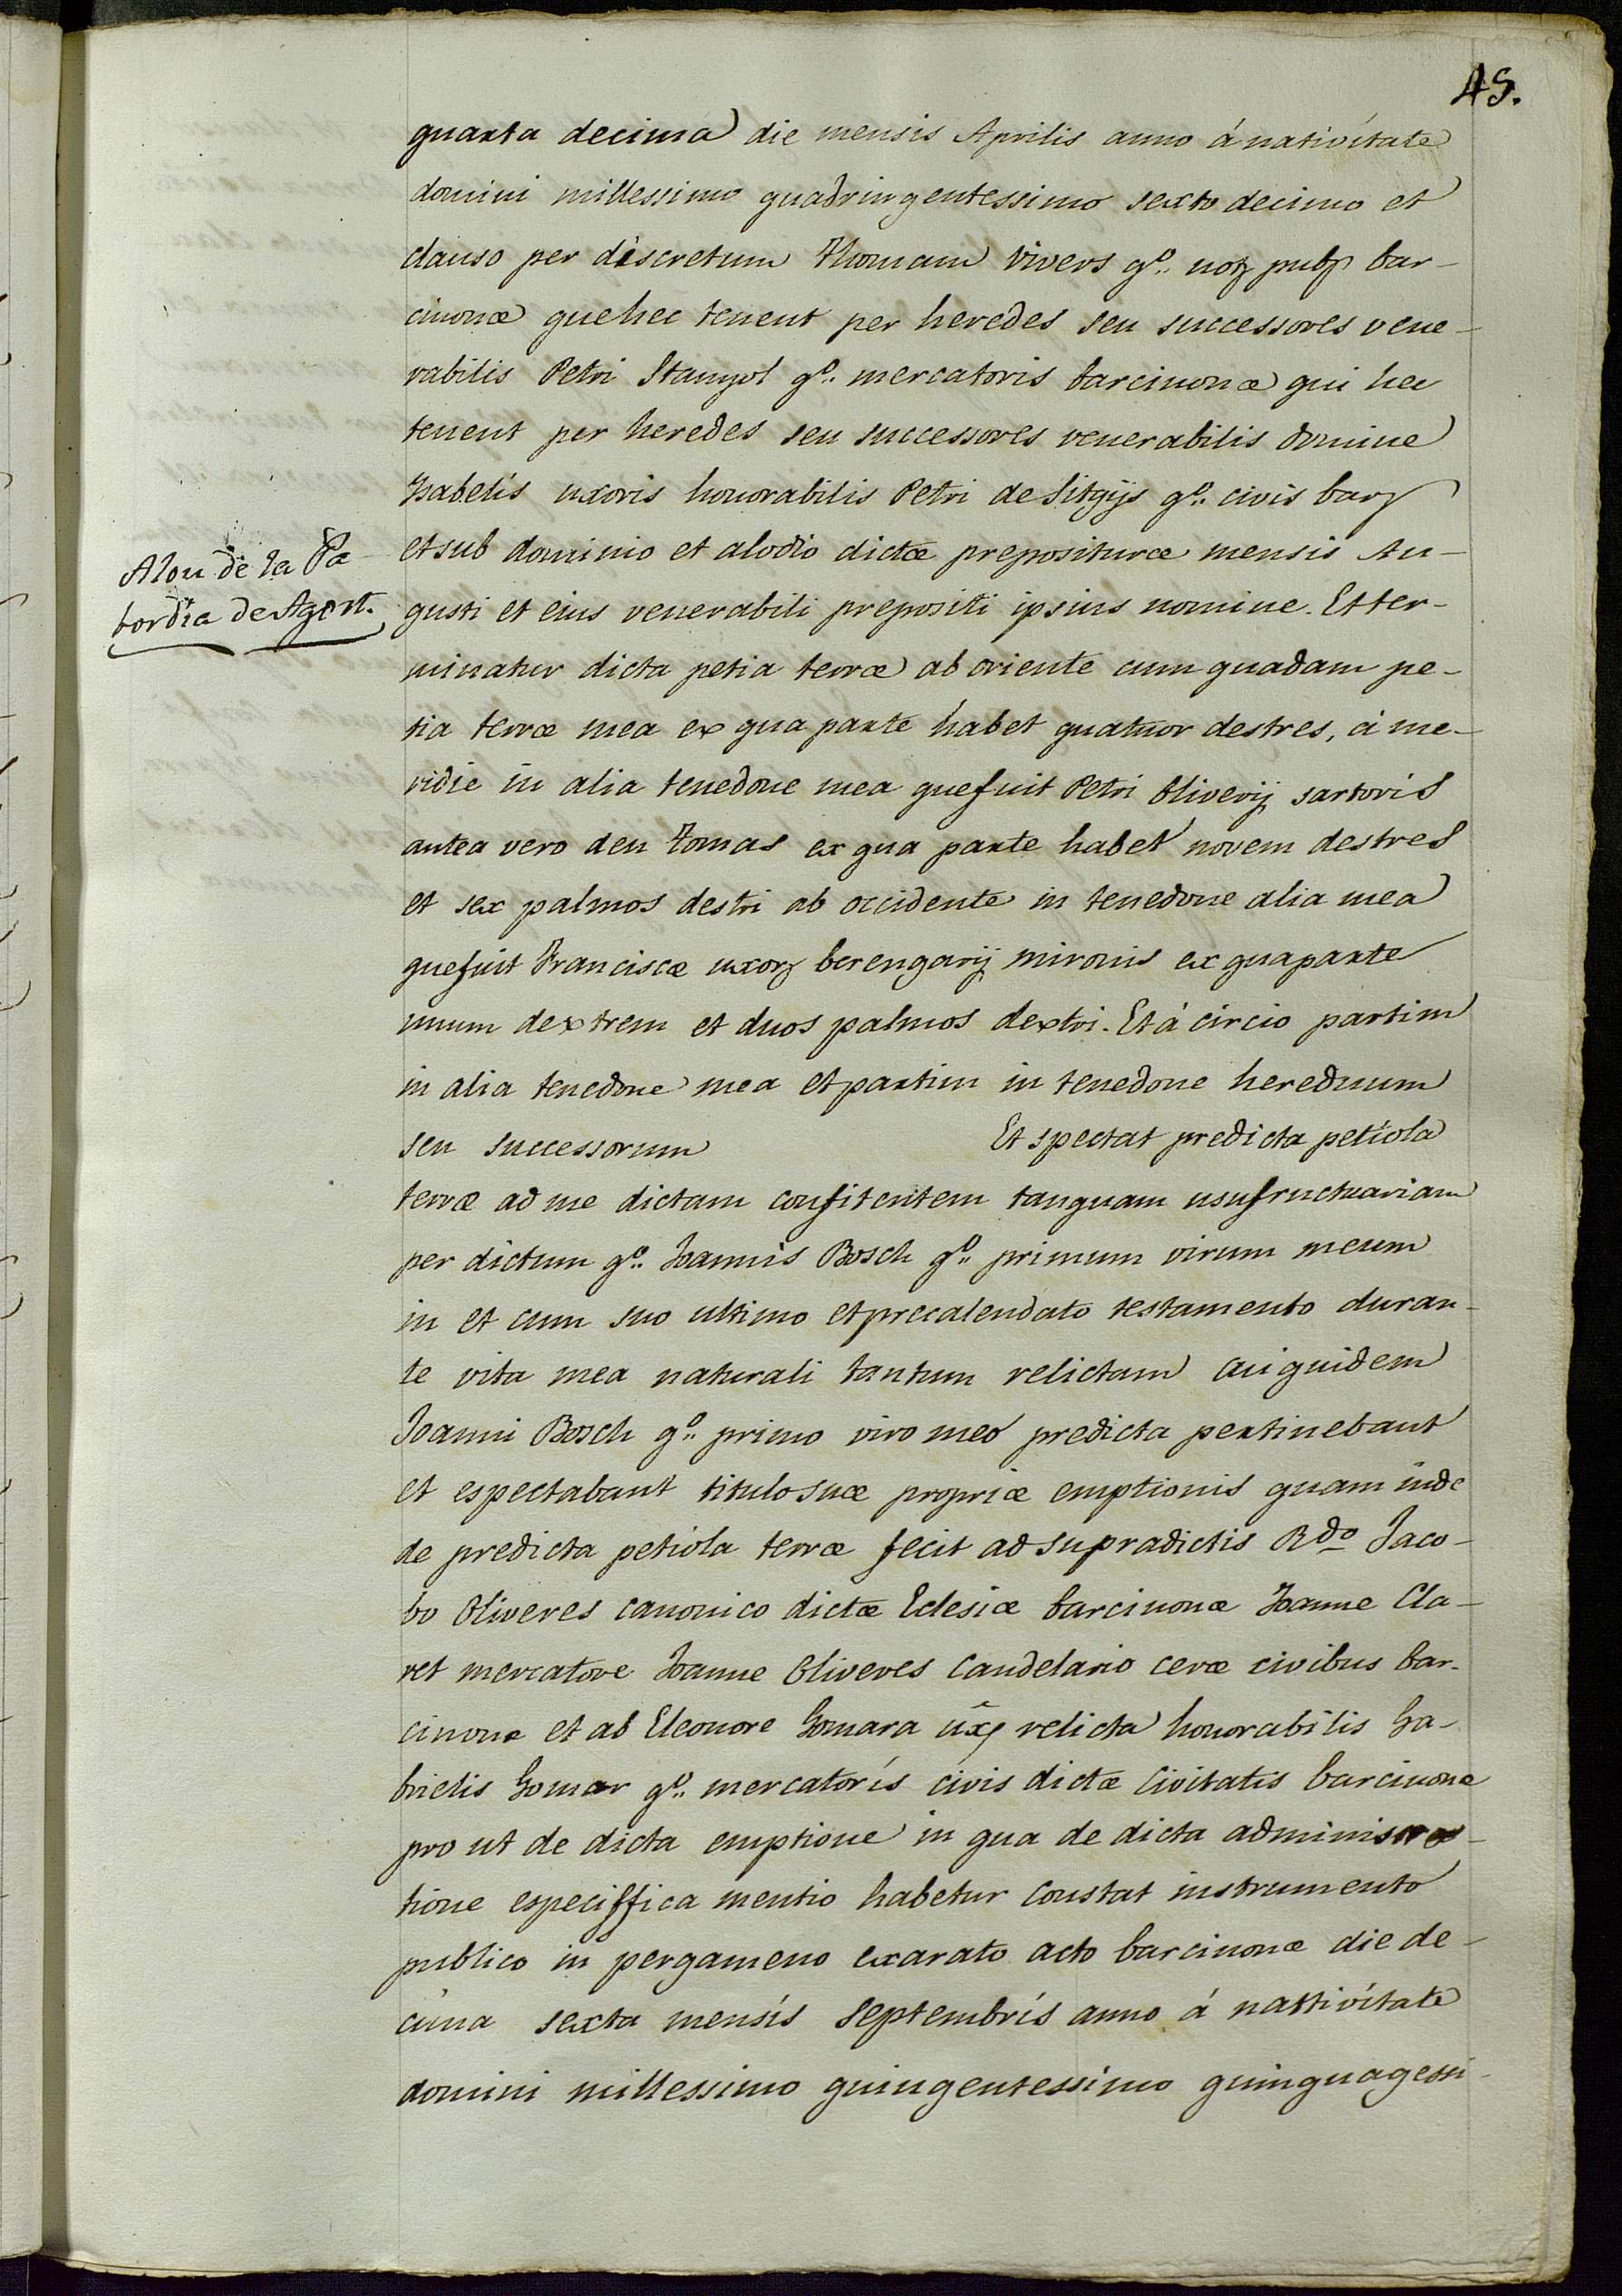 45.
quarta decima die mensis Aprilis anno á nativitate
domini millessimo quadringentessimo sexto decimo et
clauso per discretum Thomam Vivers qº. notȝ pubȝ bar-
cinonæ que hec tenent per heredes seu successores vene-
rabilis Petri Stanyol qº. mercatoris barcinonæ qui hec
tenent per heredes seu successores venerabilis domine
Isabelis uxoris honorabilis Petri de Sitgijs qº. civis barȝ
Alou de la Pa
bordia de Agost.
et sub dominio et alodio dictæ prepositurae mensis Au-
gusti et eius venerabili prepositi ipsius nomine. Et ter-
minatur dicta petia terræ ab oriente cum quadam pe-
tia terræ mea ex qua parte habet quatuor destres, á me-
ridie in alia tenedone mea que fuit Petri Oliverij sartoris
antea vero den Tomas ex qua parte habet novem destres
et sex palmos destri ab occidente in tenedone alia mea
que fuit Franciscæ uxorȝ berengarij mironis ex qua parte
unum dextrem et duos palmos dextri. Et á circio partim
in alia tenedone mea et partim in tenedone heredum
seu successorum Et spectat predicta petiola
terræ ad me dictam confitentem tanquam usufructuariam
per dictum qº. Joannis Bosch qº. primum virum meum
in et cum suo ultimo et precalendato testamento duran-
te vita mea naturali tantum relictam cui quidem
Joanni Bosch qº. primo viro meo predicta pertinebant
et espectabant titulo suæ propriæ emptionis quam inde
de predicta petiola terræ fecit ad supradictis Rdº Jaco-
bo Oliveres canonico dictæ Eclesiæ barcinonæ Joanne Cla-
ret mercatore Joanne Oliveres Candelario ceræ civibus bar-
cinonæ et ab Eleonore Gomara uxȝ relicta honorabilis Ga-
brielis Gomar qº. mercatoris civis dictæ Civitatis barcinonæ
pro ut de dicta emptione in qua de dicta administra-
tione especiffica mentio habetur constat instrumento
publico in pergameno exarato acto barcinonæ die de-
cima sexta mensis Septembris anno á nattivitate
domini millessimo quingentessimo quinquagessi-